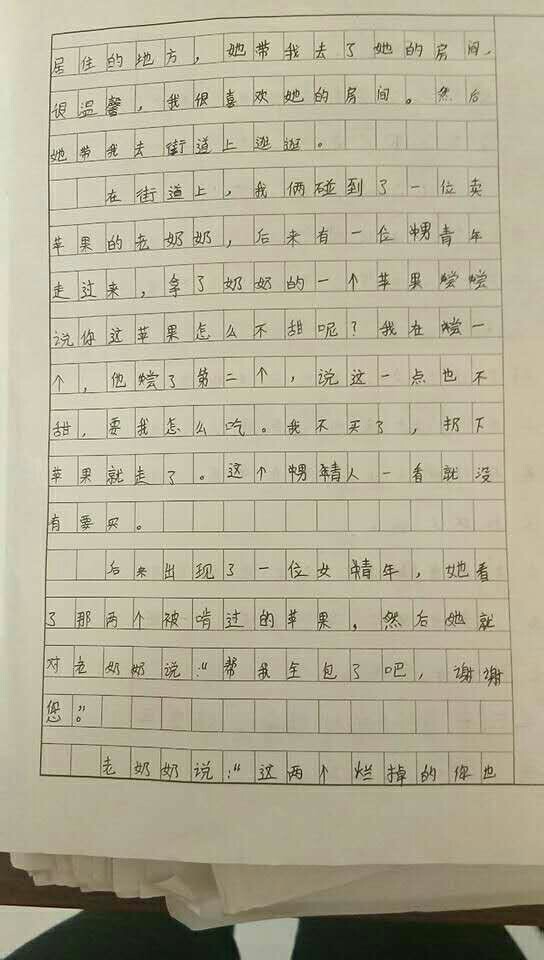 居住的地方，她带我去了她的房间，
很温馨，我很喜欢她的房间。然后
她带我去街道上逛逛。
在街道上，我俩碰到了一位卖
苹果的老奶奶，后来有一位男青年
走过来，拿了奶奶的一个苹果尝尝
说你这苹果怎么不甜呢？我在尝一
个，他尝了第二个，说这一点也不
甜，要我怎么吃。我不买了，扔下
苹果就走了。这个男青人一看就没
有要买。
后来出现了一位女青年，她看
了那两个被啃过的苹果，然后她就
对老奶奶说：“帮我全包了吧，谢谢
您”。
老奶奶说：“这两个烂掉的你也